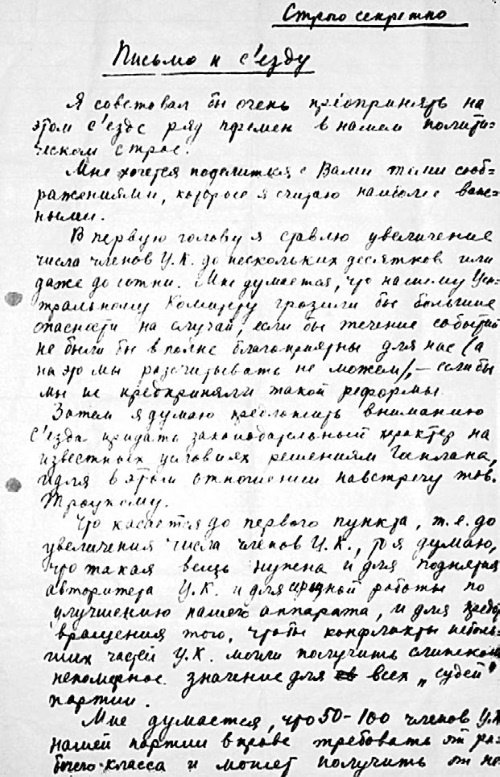 Строго секретно
Письмо к с'езду
Я советовал бы очень предпринять на
этом с'езде ряд перемен в нашем полити-
ческом строе.
Мне хочется поделиться с Вами теми сооб-
ражениями, которые я считаю наиболее важ-
ными.
В первую голову я ставлю увеличение
числа членов Ц.К. до нескольких десятков или
даже до сотни. Мне думается, что нашему Цен-
тральному Комитету грозили бы большие
опасности на случай, если бы течение событий
не было бы вполне благоприятны для нас (а
на это мы рассчитывать не можем), – если бы
мы не предприняли такой реформы.
Затем я думаю предложить вниманию
с'езда придать законодательный характер на
известных условиях решениям Госплана,
идя в этом отношении навстречу тов.
Троцкому.
Что касается до первого пункта, т.е. до
увеличения числа членов Ц.К., то я думаю,
что такая вещь нужна и для поднятия
авторитета Ц.К. и для серьезной работы по
улучшению нашего аппарата, и для предот
вращения того, чтобы конфликты неболь
ших частей Ц.К. могли получить слишком
непомерное значение для всех „судеб"
партии.
Мне думается, что 50–100 членов Ц.К.
наша партия вправе требовать от ра-
бочего класса и может получить от не